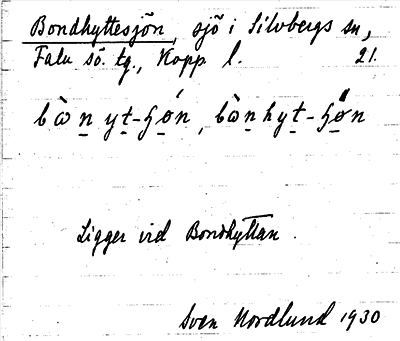 Bondhyttesjön, sjö i Silvbergs sn,
Falu sö. tg., Kopp l. 21.
Ligger vid Bondhyttan.
Sven Nordlund 1930